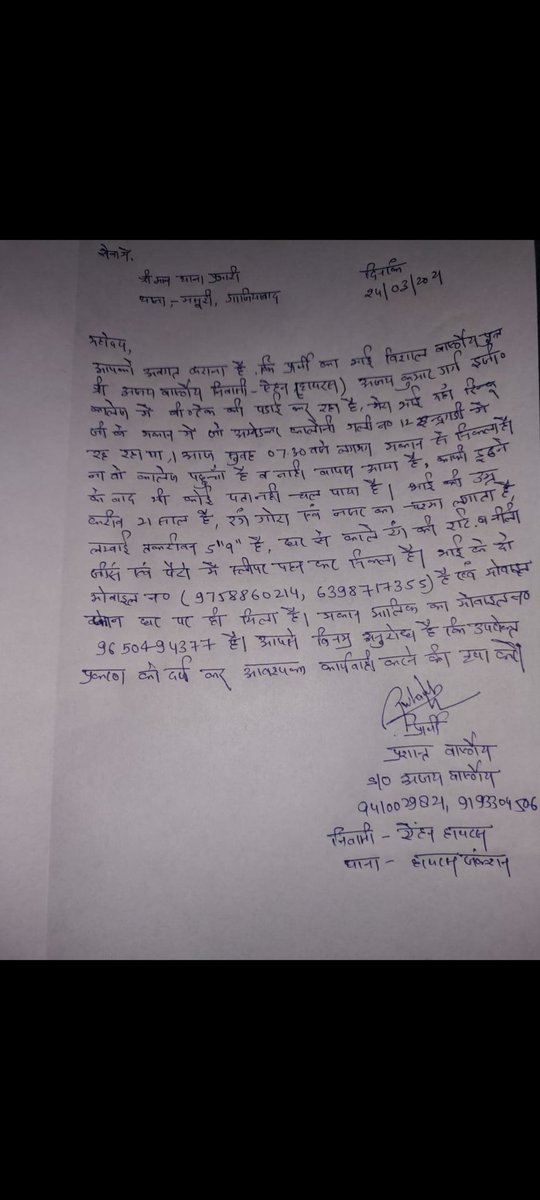 सेवा में,
श्रीमान थाना प्रभारी
थाना - मसूरी, गाजियाबाद
दिनांक
24/03/2021
महोदय,
आपको अवगत कराना है, कि प्रार्थी का भाई विशाल वार्ष्णेय पुत्र
श्री अजय वार्ष्णेय निवासी - (हाथरस) अजय कुमार गर्ग इंजी०
कालेज में बी०टेक की पढ़ाई कर रहा है, मेरा भाई यहाँ
जी के मकान में जो कालोनी गली न० 12 में
रह रहा था, आज सुबह 07.30 बजे लगभग मकान से निकला है।
ना वो कालेज पहुँचा है व नाही वापस आया है, काफी ढूढने
के बाद भी कोई पता नही चल पाया है। भाई की उम्र
करीब 21 साल है, रंग गोरा एवं नजर का चश्मा लगाता है,
लम्बाई तकरीबन 5"9" है, घर से काले रंग की शर्ट व नीली
जींस एवं पैरो में स्लीपर पहन कर निकला है। भाई के दो
मोबाइल न० (9758860214, 6398717355) है एवं मोबाइल
फोन घर पर ही मिला है। मकान मालिक का मोबाइल न०
9650494377 है। आपसे विनम्र अनुरोध है कि उपरोक्त
प्रकरण को दर्ज कर आवश्यक कार्यवाही करने की कृपा करें।
प्रार्थी
प्रशान्त वार्ष्णेय
s/o अजय वार्ष्णेय
941002982, 9193304506
निवासी - हाथरस
थाना - हाथरस जंक्शन